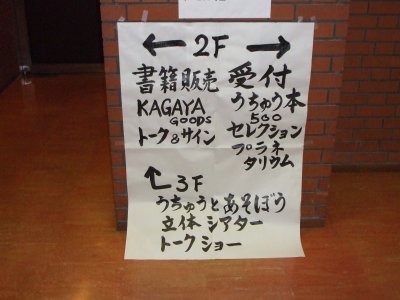 ← 2F →
書籍販売
KAGAYA
GOODS
トーク&サイン
受付
うちゅう本
500
セレクション
プラネ
タリウム
↰ 3F
うちゅうとあそぼう
立体シアター
トークショー